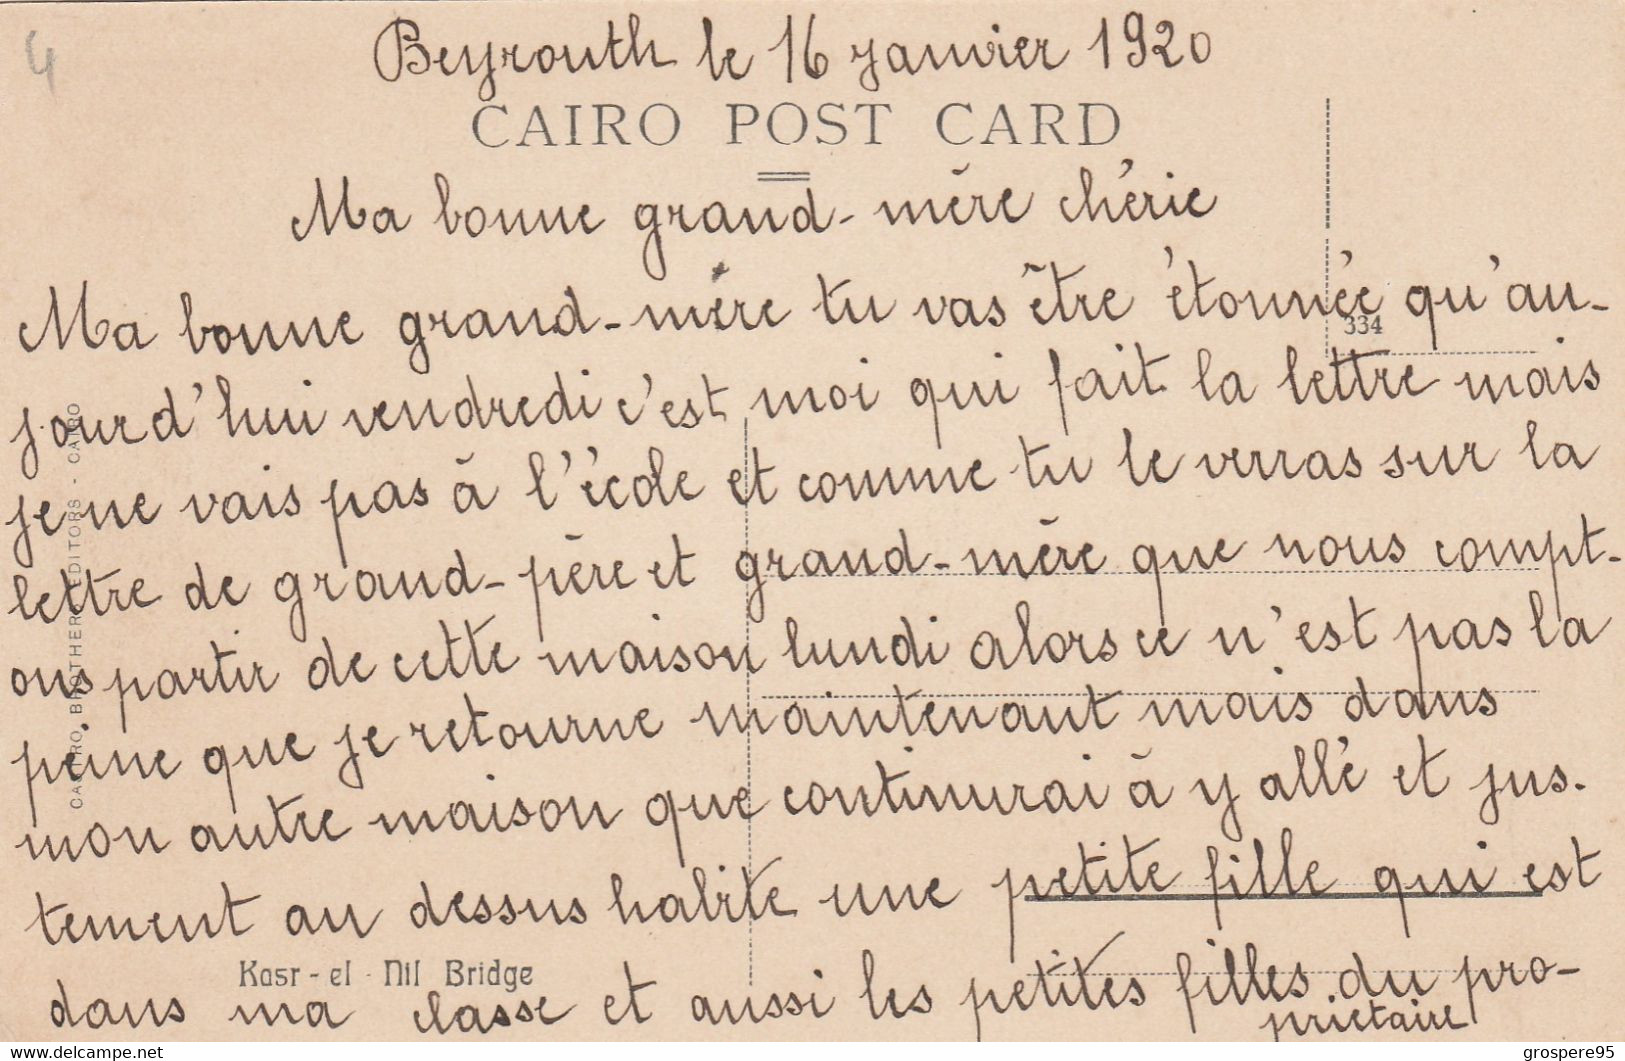 4
Beyrouth le 16 janvier 1920
CAIRO POST CARD
Ma bonne grand-mère chérie
Ma bonne grand-mère tu vas être étonnée qu'au-
334
jourd'hui vendredi c'est moi qui fait la lettre mais
je ne vais pas à l'école et comme tu le verras sur la
lettre de grand-père et grand-mère que nous compt-
ons partir de cette maison lundi alors ce n'est pas la
peine que je retourne maintenant mais dans
mon autre maison que continurai à y allé et jus-
tement au dessus habite une petite fille qui est
Kasr-el-Nil Bridge
dans ma classe et aussi les petites filles du pro-
priétaire
CAIRO, BROTHERS EDITORS - CAIRO
© delcampe.com
grospere95